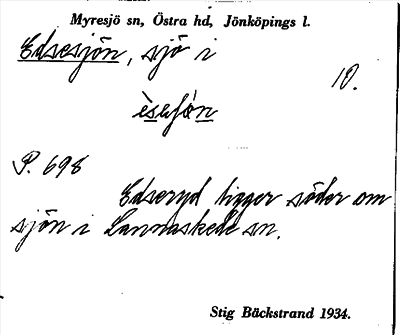 Myresjö sn, Östra hd, Jönköpings l.
Edsesjön, sjö i
10.
P. 698
Edseryd ligger söder om
sjön i Lannaskede sn.
Stig Bäckstrand 1934.